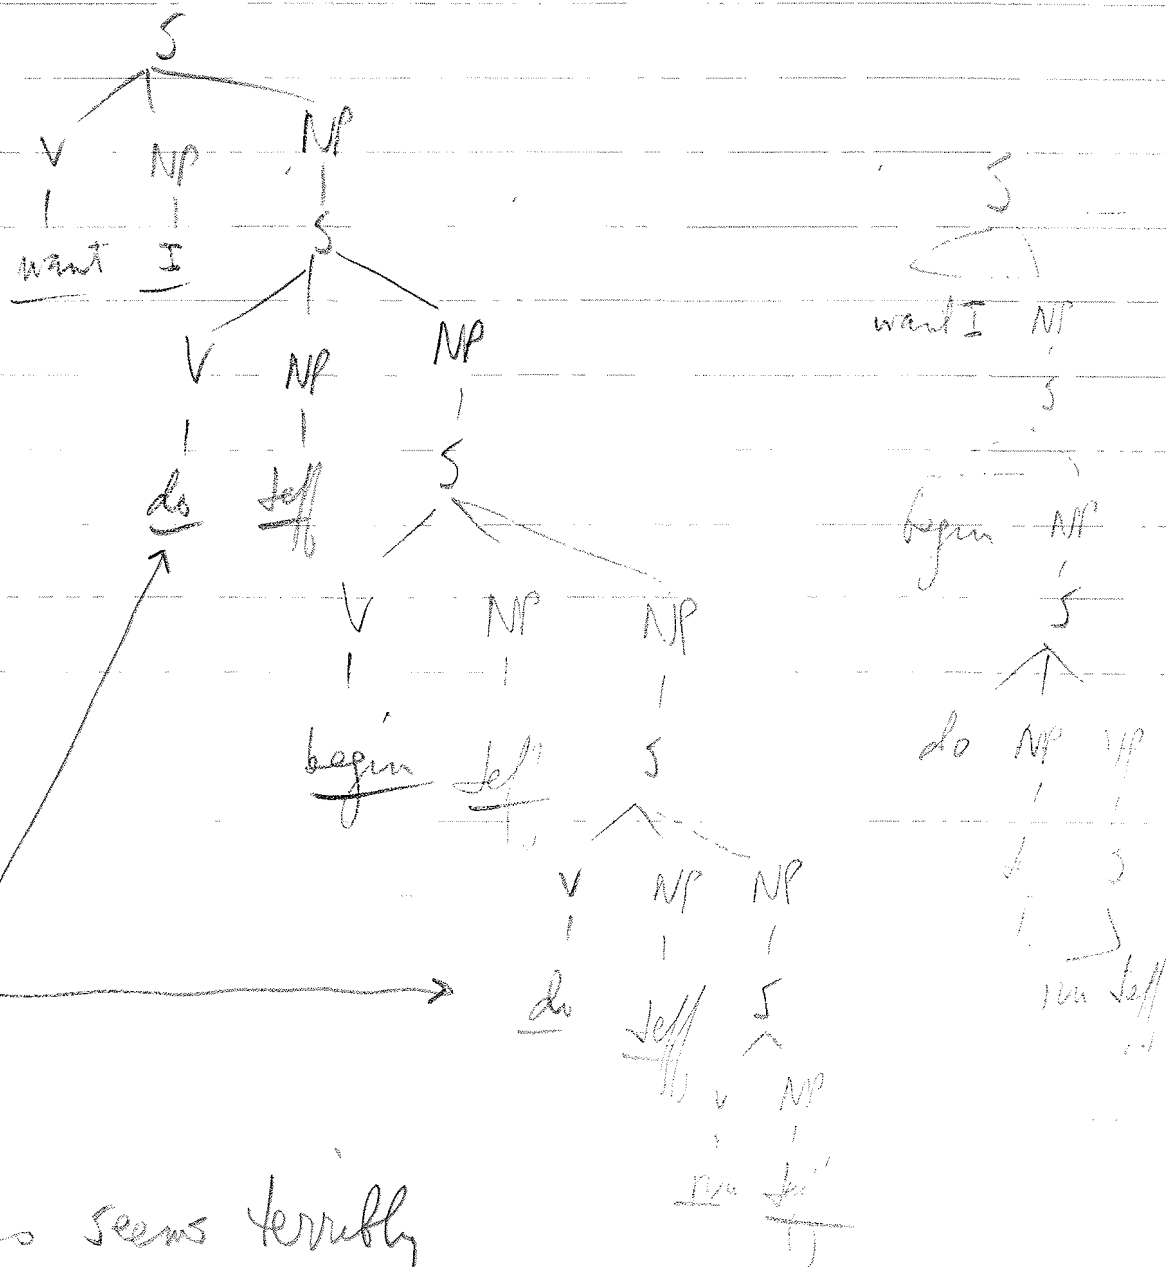 S
V NP NP
want I S
V NP NP
do Jeff S
V NP NP
begin Jeff S
V NP NP
do Jeff S
V NP
run Jeff
S
want I NP
S
begin NP
S
do NP NP
S
run Jeff
seems terribly